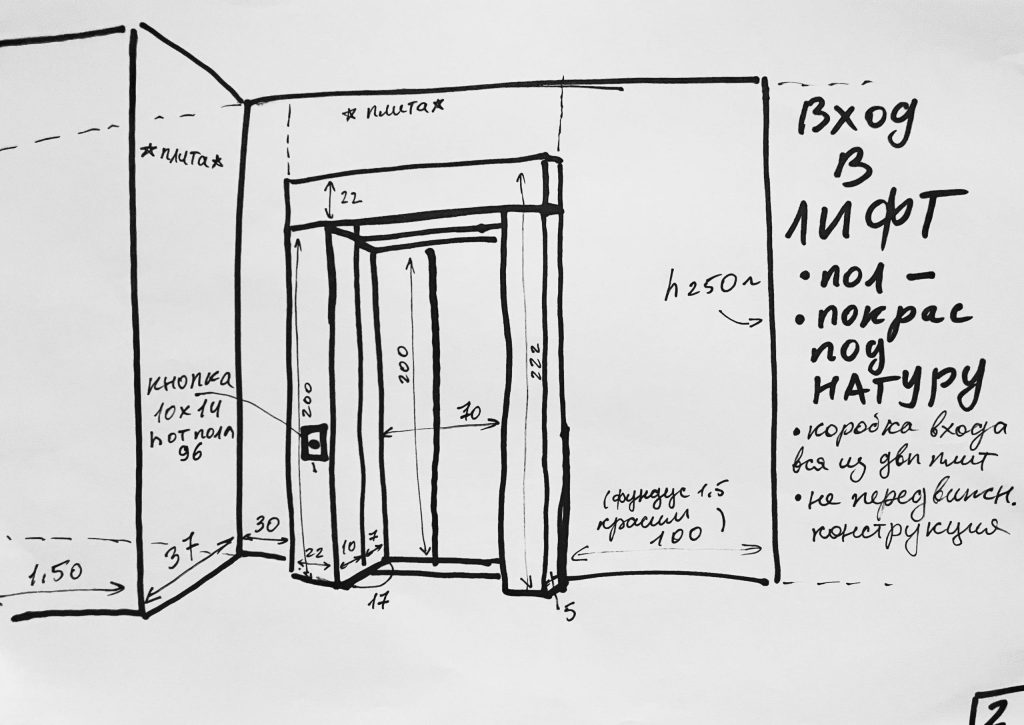 *плита*
*плита*
22
200
200
222
70
h 250
КНОПКА
10х14
h от пола
96
37
1.50
30
22
10
7
17
5
(фундус 1.5
красим
100 )
ВХОД
В
ЛИФТ
• ПОЛ –
• ПОКРАС
ПОД
НАТУРУ
• коробка входа
вся из двп плит
• не передвижн.
конструкция
2